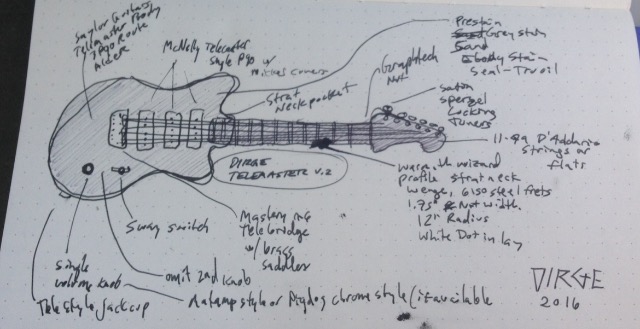 Guitars
Telemaster Body
P90 Route
Alder
McNally Telecaster
Style P90 w/
Nickel Covers
Strat
Neck pocket
Graphtech
Nut
Prestain
Grey stain
Sand
Ebody Stain
Seal-Truoil
Satin
Sperzel
Locking
Tuners
11-49 D'Addario
strings or
flats
Warmoth wizard
profile strat neck
wenge, 6150 steel frets
1.75" Nut width
12" Radius
White Dot inlay
DIRGE
TELEMASTER V.2
5way switch
Mastery M6
Tele bridge
w/ brass
saddles
Single
volume knob
omit 2nd knob
Tele Style Jack cup
style or Pigdog chrome style (if available
DIRGE
2016